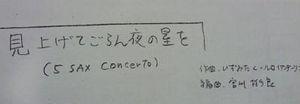 見上げてごらん夜の星を
(5 SAX Concerto)
作曲. いずみたく
編曲. 宮川